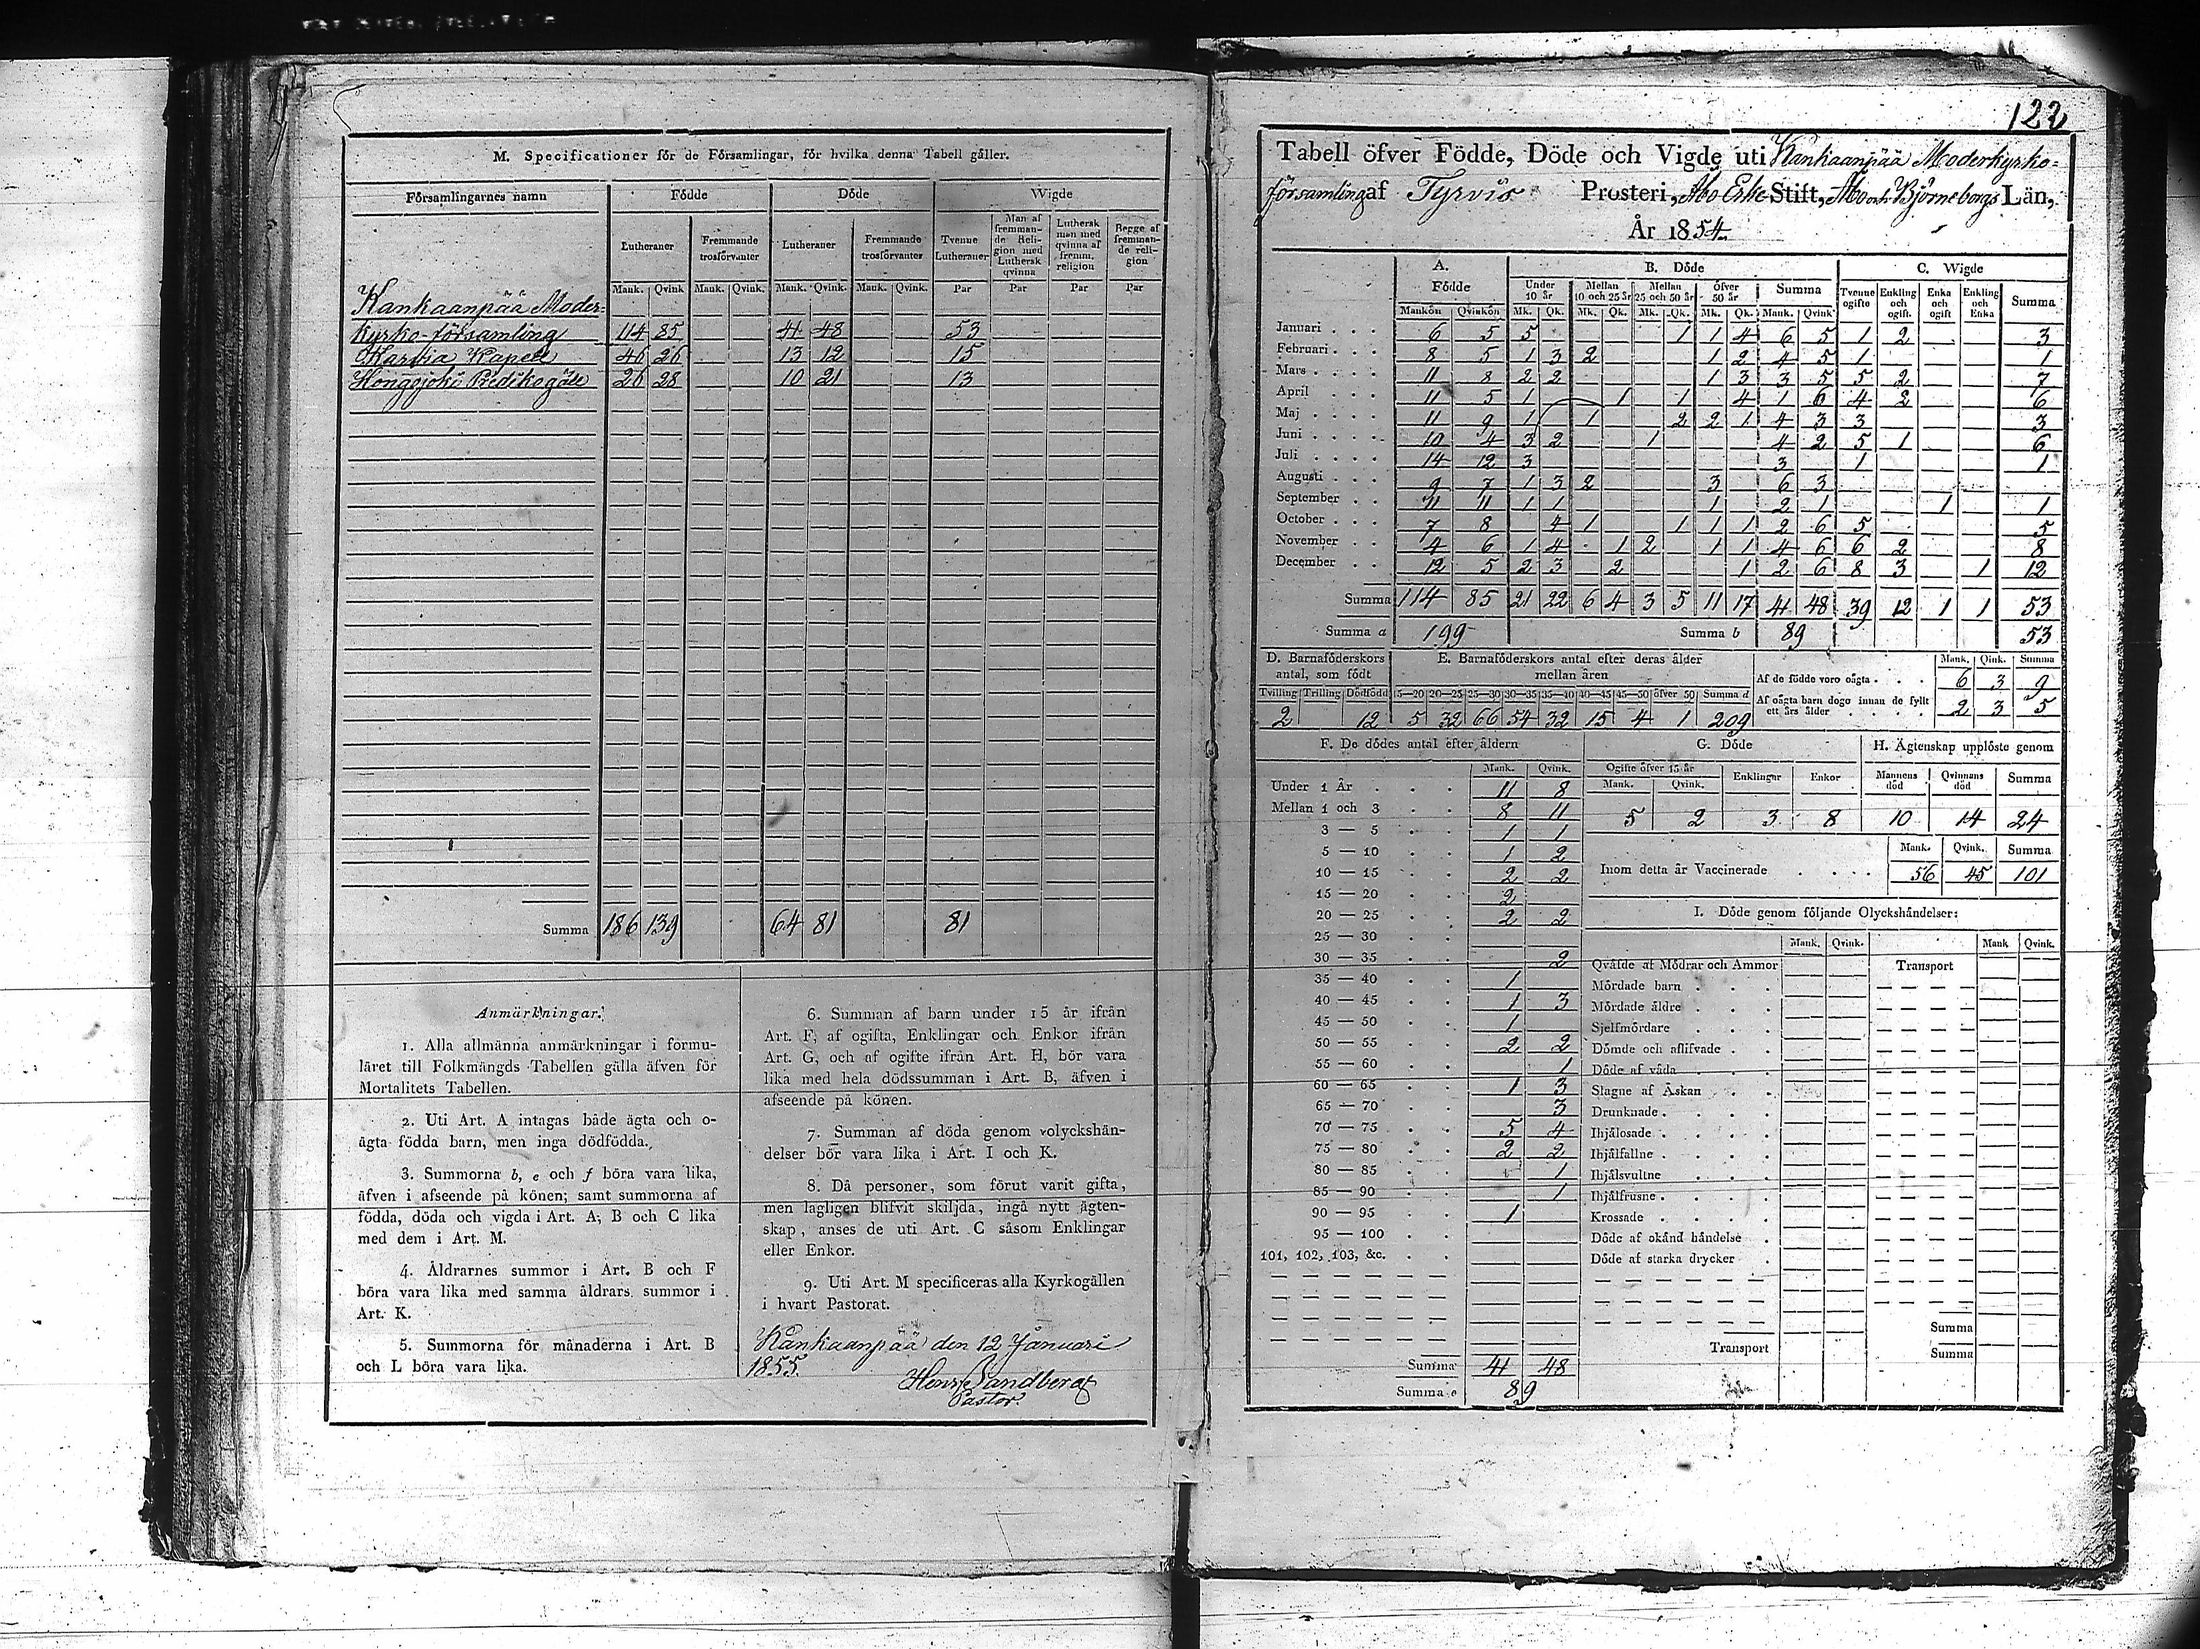 M. Specificationer för de Församlingar, för hvilka denna Tabell gäller.
Församlingarnes namn | Födde | Döde | Wigde
Lutheraner | Fremmande trosförvanter | Lutheraner | Fremmande trosförvanter | Tvenne Lutheraner | Man af fremmande Religion med Luthersk qvinna | Luthersk man med qvinna af fremm. religion | Begge af fremmande religion
Mank. Qvink. Mank. Qvink. Mank. Qvink. Mank. Qvink. Par Par Par Par
Kankaanpää Moder-
kyrko-församling 114 85 41 48 53
Karvia Kapell 46 26 13 12 15
Honggjoki Predikogäll 26 28 10 21 13
Summa 186 139 64 81 81
Anmärkningar.
1. Alla allmänna anmärkningar i formu-
läret till Folkmängds Tabellen gälla äfven för
Mortalitets Tabellen.
2. Uti Art. A intagas både ägta och o-
ägta födda barn, men inga dödfödda.
3. Summorna b, e och f böra vara lika,
äfven i afseende på könen; samt summorna af
födda, döda och vigda i Art. A, B och C lika
med dem i Art. M.
4. Åldrarnes summor i Art. B och F
böra vara lika med samma åldrars summor i
Art. K.
5. Summorna för månaderna i Art. B
och L böra vara lika.
6. Summan af barn under 15 år ifrån
Art. F, af ogifta, Enklingar och Enkor ifrån
Art. G, och af ogifte ifrån Art. H, bör vara
lika med hela dödssumman i Art. B, äfven i
afseende på könen.
7. Summan af döda genom olyckshän-
delser bör vara lika i Art. I och K.
8. Då personer, som förut varit gifta,
men lagligen blifvit skiljda, ingå nytt ägten-
skap, anses de uti Art. C såsom Enklingar
eller Enkor.
9. Uti Art. M specificeras alla Kyrkogällen
i hvart Pastorat.
Kankaanpää den 12 Januari
1855.
Henr. Sandberg
Pastor.
122
Tabell öfver Födde, Döde och Vigde uti Kankaanpää Moderkyrko-
församling af Tyrvis Prosteri, Åbo Erke Stift, Åbo och Björneborgs Län,
År 1854.
A. Födde | B. Döde | C. Wigde
Mankön Qvinkön | Under 10 år | Mellan 10 och 25 år | Mellan 25 och 50 år | öfver 50 år | Summa | Tvenne ogifte | Enkling och ogift. | Enka och ogift | Enkling och Enka | Summa
Mk. Qk. Mk. Qk. Mk. Qk. Mk. Qk. Mank. Qvink
Januari 6 5 5 1 1 4 6 5 1 2 3
Februari 8 5 1 3 2 1 2 4 5 1 1
Mars 11 8 2 2 1 3 3 5 5 2 7
April 11 5 1 1 1 4 1 6 4 2 6
Maj 11 9 1 1 2 2 1 4 3 3 3
Juni 10 4 3 2 1 4 2 5 1 6
Juli 14 12 3 3 1 1
Augusti 9 7 1 3 2 3 6 3
September 11 11 1 1 1 2 1 1 1
October 7 8 4 1 1 1 1 2 6 5 5
November 4 6 1 4 1 2 1 1 4 6 6 2 8
December 12 5 2 3 2 1 2 6 8 3 1 12
Summa 114 85 21 22 6 4 3 5 11 17 41 48 39 12 1 1 53
Summa a 199 Summa b 89 53
D. Barnaföderskors antal, som födt | E. Barnaföderskors antal efter deras ålder mellan åren
Tvilling Trilling Dödfödd 15—20 20—25 25—30 30—35 35—40 40—45 45—50 öfver 50 Summa d
2 12 5 32 66 54 32 15 4 1 209
Mank. Qink. Summa
Af de födde voro oägta 6 3 9
Af oägta barn dogo innan de fyllt ett års ålder 2 3 5
F. De dödes antal efter åldern
Mank. Qvink.
Under 1 År 11 8
Mellan 1 och 3 8 11
3 — 5 1 1
5 — 10 1 2
10 — 15 2 2
15 — 20 2
20 — 25 2 2
25 — 30
30 — 35 2
35 — 40 1
40 — 45 1 3
45 — 50 1
50 — 55 2 2
55 — 60 1
60 — 65 1 3
65 — 70 3
70 — 75 5 4
75 — 80 2 2
80 — 85 1
85 — 90 1
90 — 95 1
95 — 100
101, 102, 103, &c.
Summa 41 48
Summa e 89
G. Döde
Ogifte öfver 15 år Enklingar Enkor
Mank. Qvink.
5 2 3 8
H. Ägtenskap upplöste genom
Mannens död Qvinnans död Summa
10 14 24
Mank. Qvink. Summa
Inom detta år Vaccinerade 56 45 101
I. Döde genom följande Olyckshändelser:
Mank. Qvink. Mank Qvink.
Qväfde af Mödrar och Ammor Transport
Mördade barn
Mördade äldre
Sjelfmördare
Dömde och aflifvade
Döde af våda
Slagne af Åskan
Drunknade
Ihjälosade
Ihjälfallne
Ihjälsvultne
Ihjälfrusne
Krossade
Döde af okänd händelse
Döde af starka drycker
Summa
Transport Summa